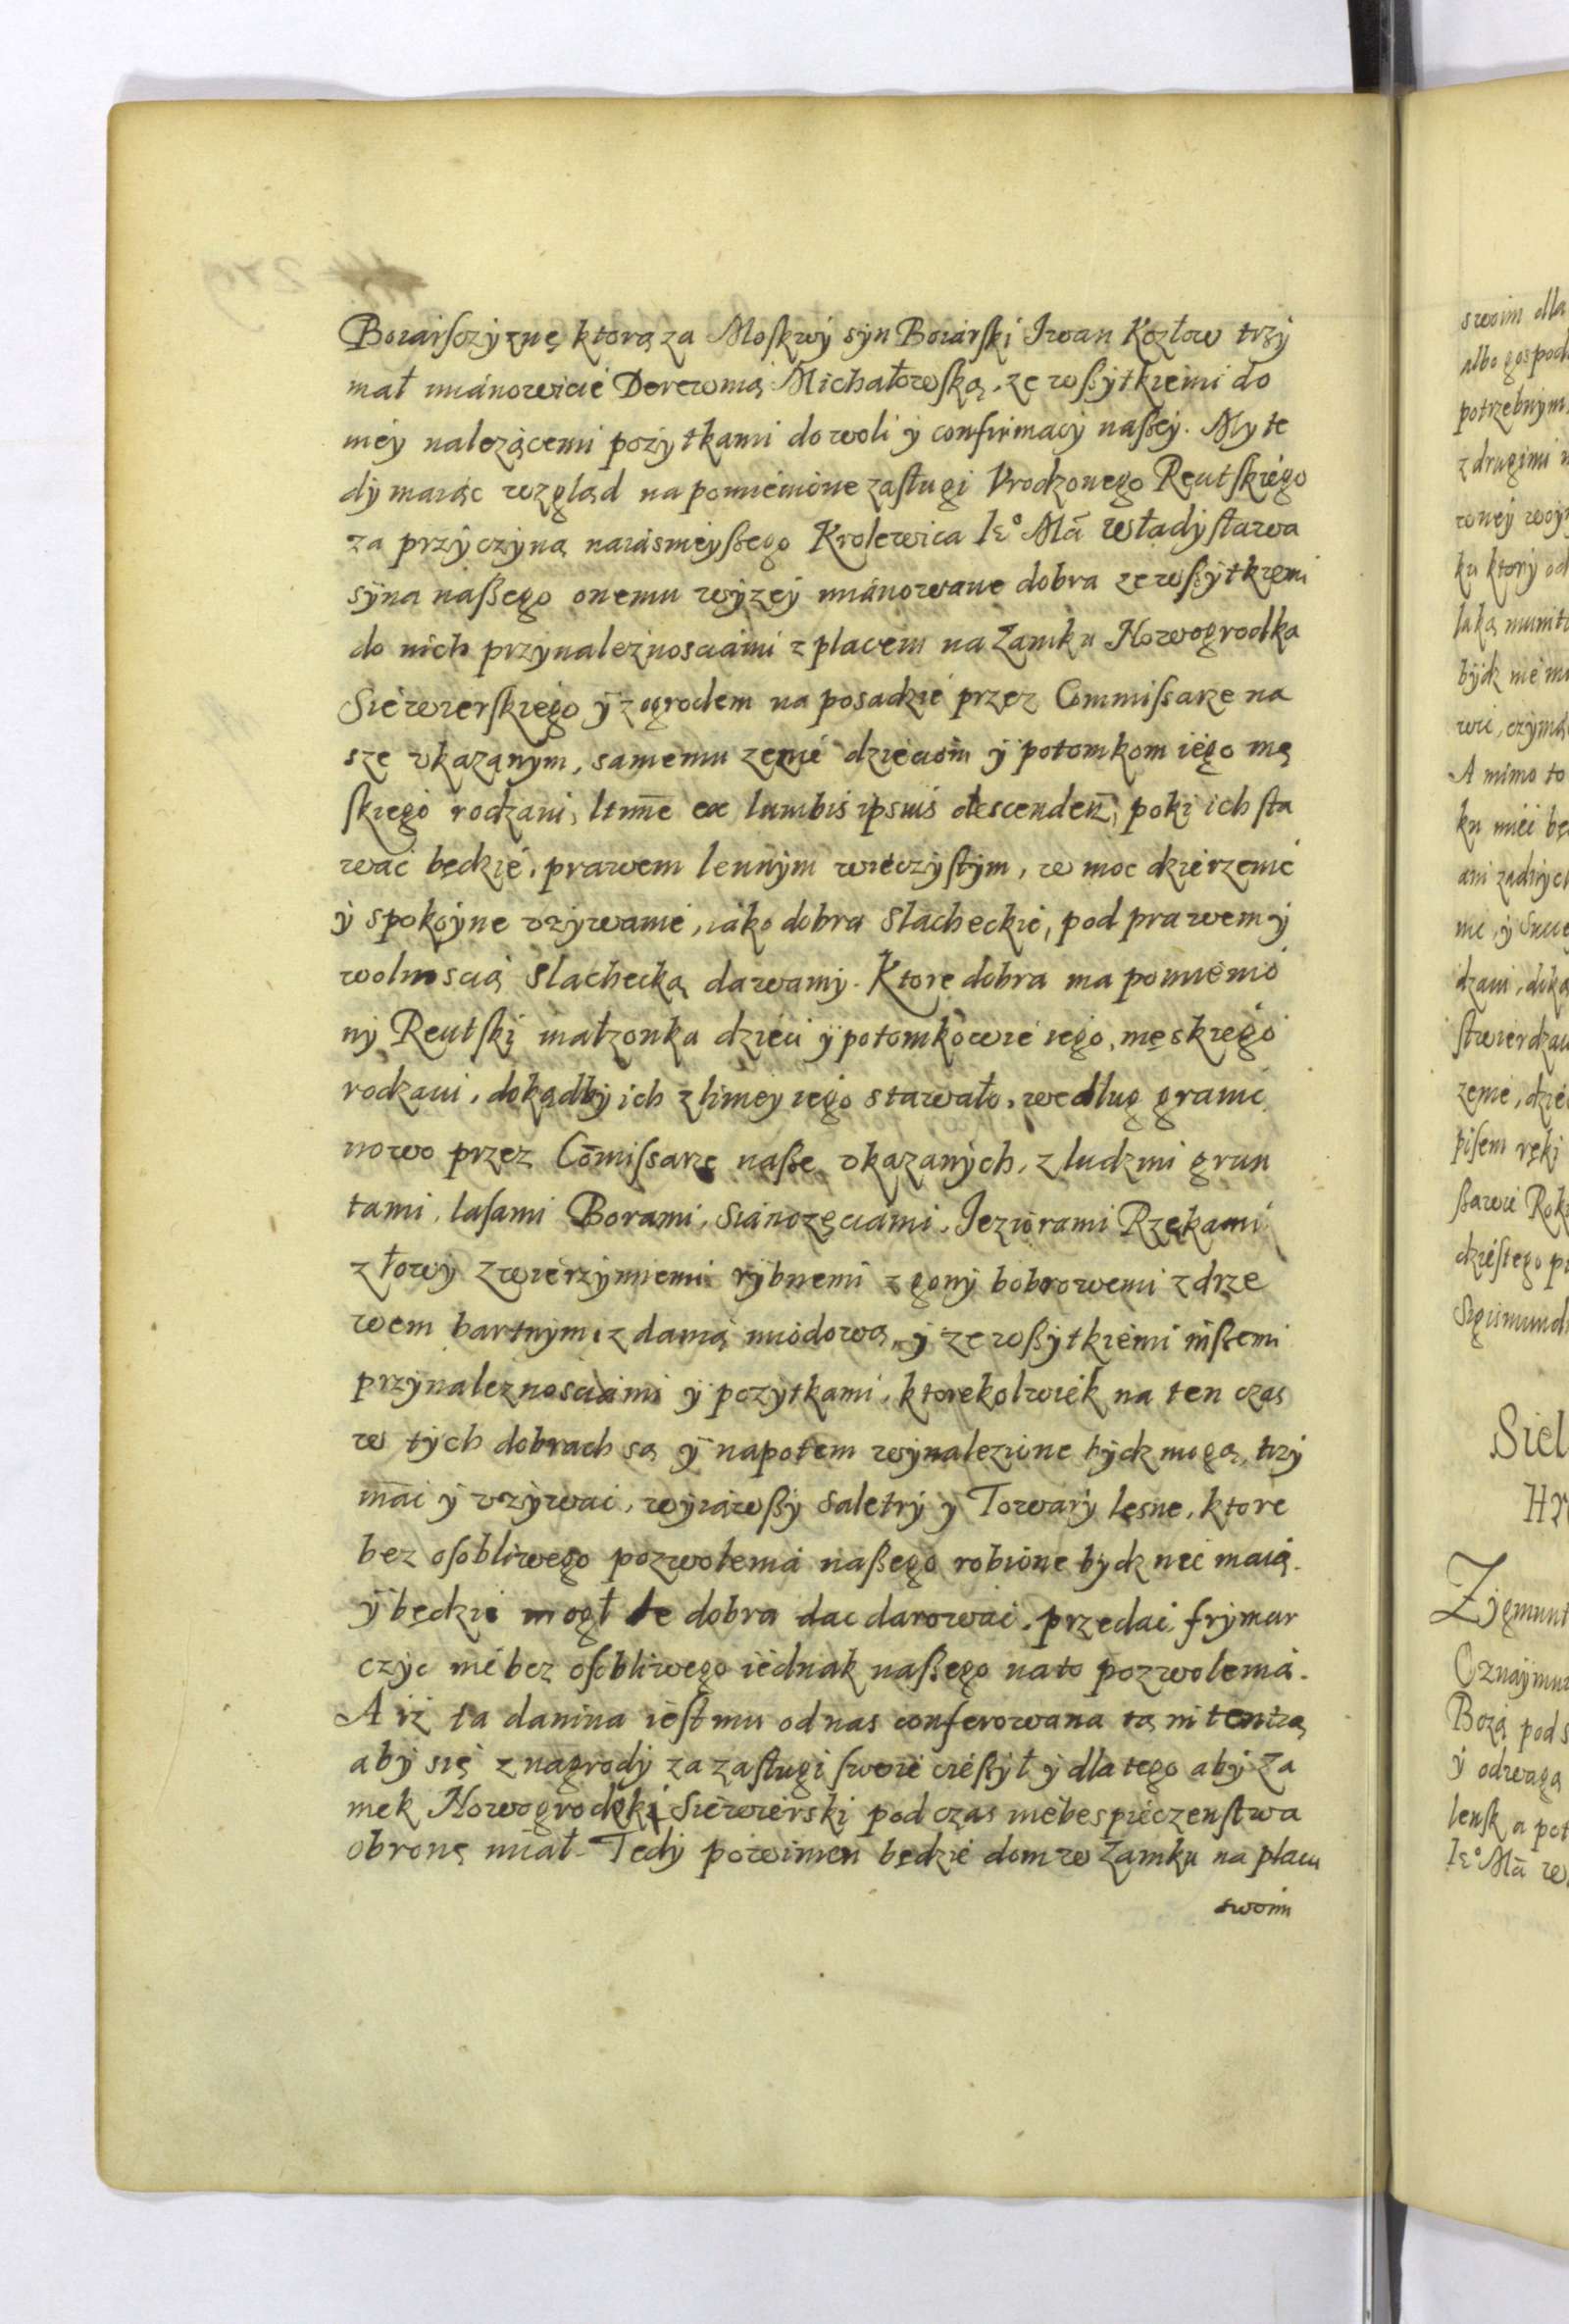 Boiarsczyznę ktorą za Moskwy syn Boiarski Iwan Kozłow trzy
mał mianowicie Derewnią Michałowską, ze wßytkiemi do
niey nalezącemi pozytkami do woli y confirmacÿ naßey. My te
dy maiąc wzgląd na pomienione zasługi Vrodzonego Reutskiego
za przyczyną naiasnieyßego Krolewica Ieº Mā Władysława
syna naßego onemu wyzey mianowane dobra ze wßytkiemi
do nich przynaleznosciami z placem na Zamku Nowogrodka
Siewierskiego y z ogrodem na posadzie przez Commissarze na
sze vkazanym, samemu zenie dzieciom y potomkom iego mę
skiego rodzaiu, ltmē ex lumbis ipsius descenden, poki ich sta
wac będzie, prawem lennym wieczystym, w moc dzierzenie
y spokoyne vzywanie, iako dobra Slacheckie, pod prawem y
wolnoscią Slachecką dawamy. Ktore dobra ma pomienio
ny Reutski małzonka dzieci y potomkowie iego, męskiego
rodzaiu, dokądby ich z liniey iego stawało, według granic
nowo przez Cōmissarze naße vkazanych, z ludzmi grun
tami, lasami Borami, Sianozęciami, Ieziorami Rzekami
z łowy zwierzynnemi rybnemi z gony bobrowemi z drze
wem bartnym, z danią miodową, y ze wßytkiemi inßemi
przynaleznosciami y pozytkami, ktorekolwiek na ten czas
w tych dobrach są y napotem wynalezione bydz mogą, trzy
mac y vzywac, wyiąwßy Saletry y Towary lesne, ktore
bez osobliwego pozwolenia naßego robione bydz nie maią.
y będzie mogł te dobra dac darowac, przedac, frymar
czyc nie bez osobliwego iednak naßego na to pozwolenia.
A iz ta danina iest mu od nas conferowana tą intentią
aby się z nagrody za zasługi swoie cießył y dla tego aby Za
mek Nowogrodzki Siewierski pod czas niebespieczenstwa
obronę miał. Tedy powinien będzie dom w Zamku na placu
swoim